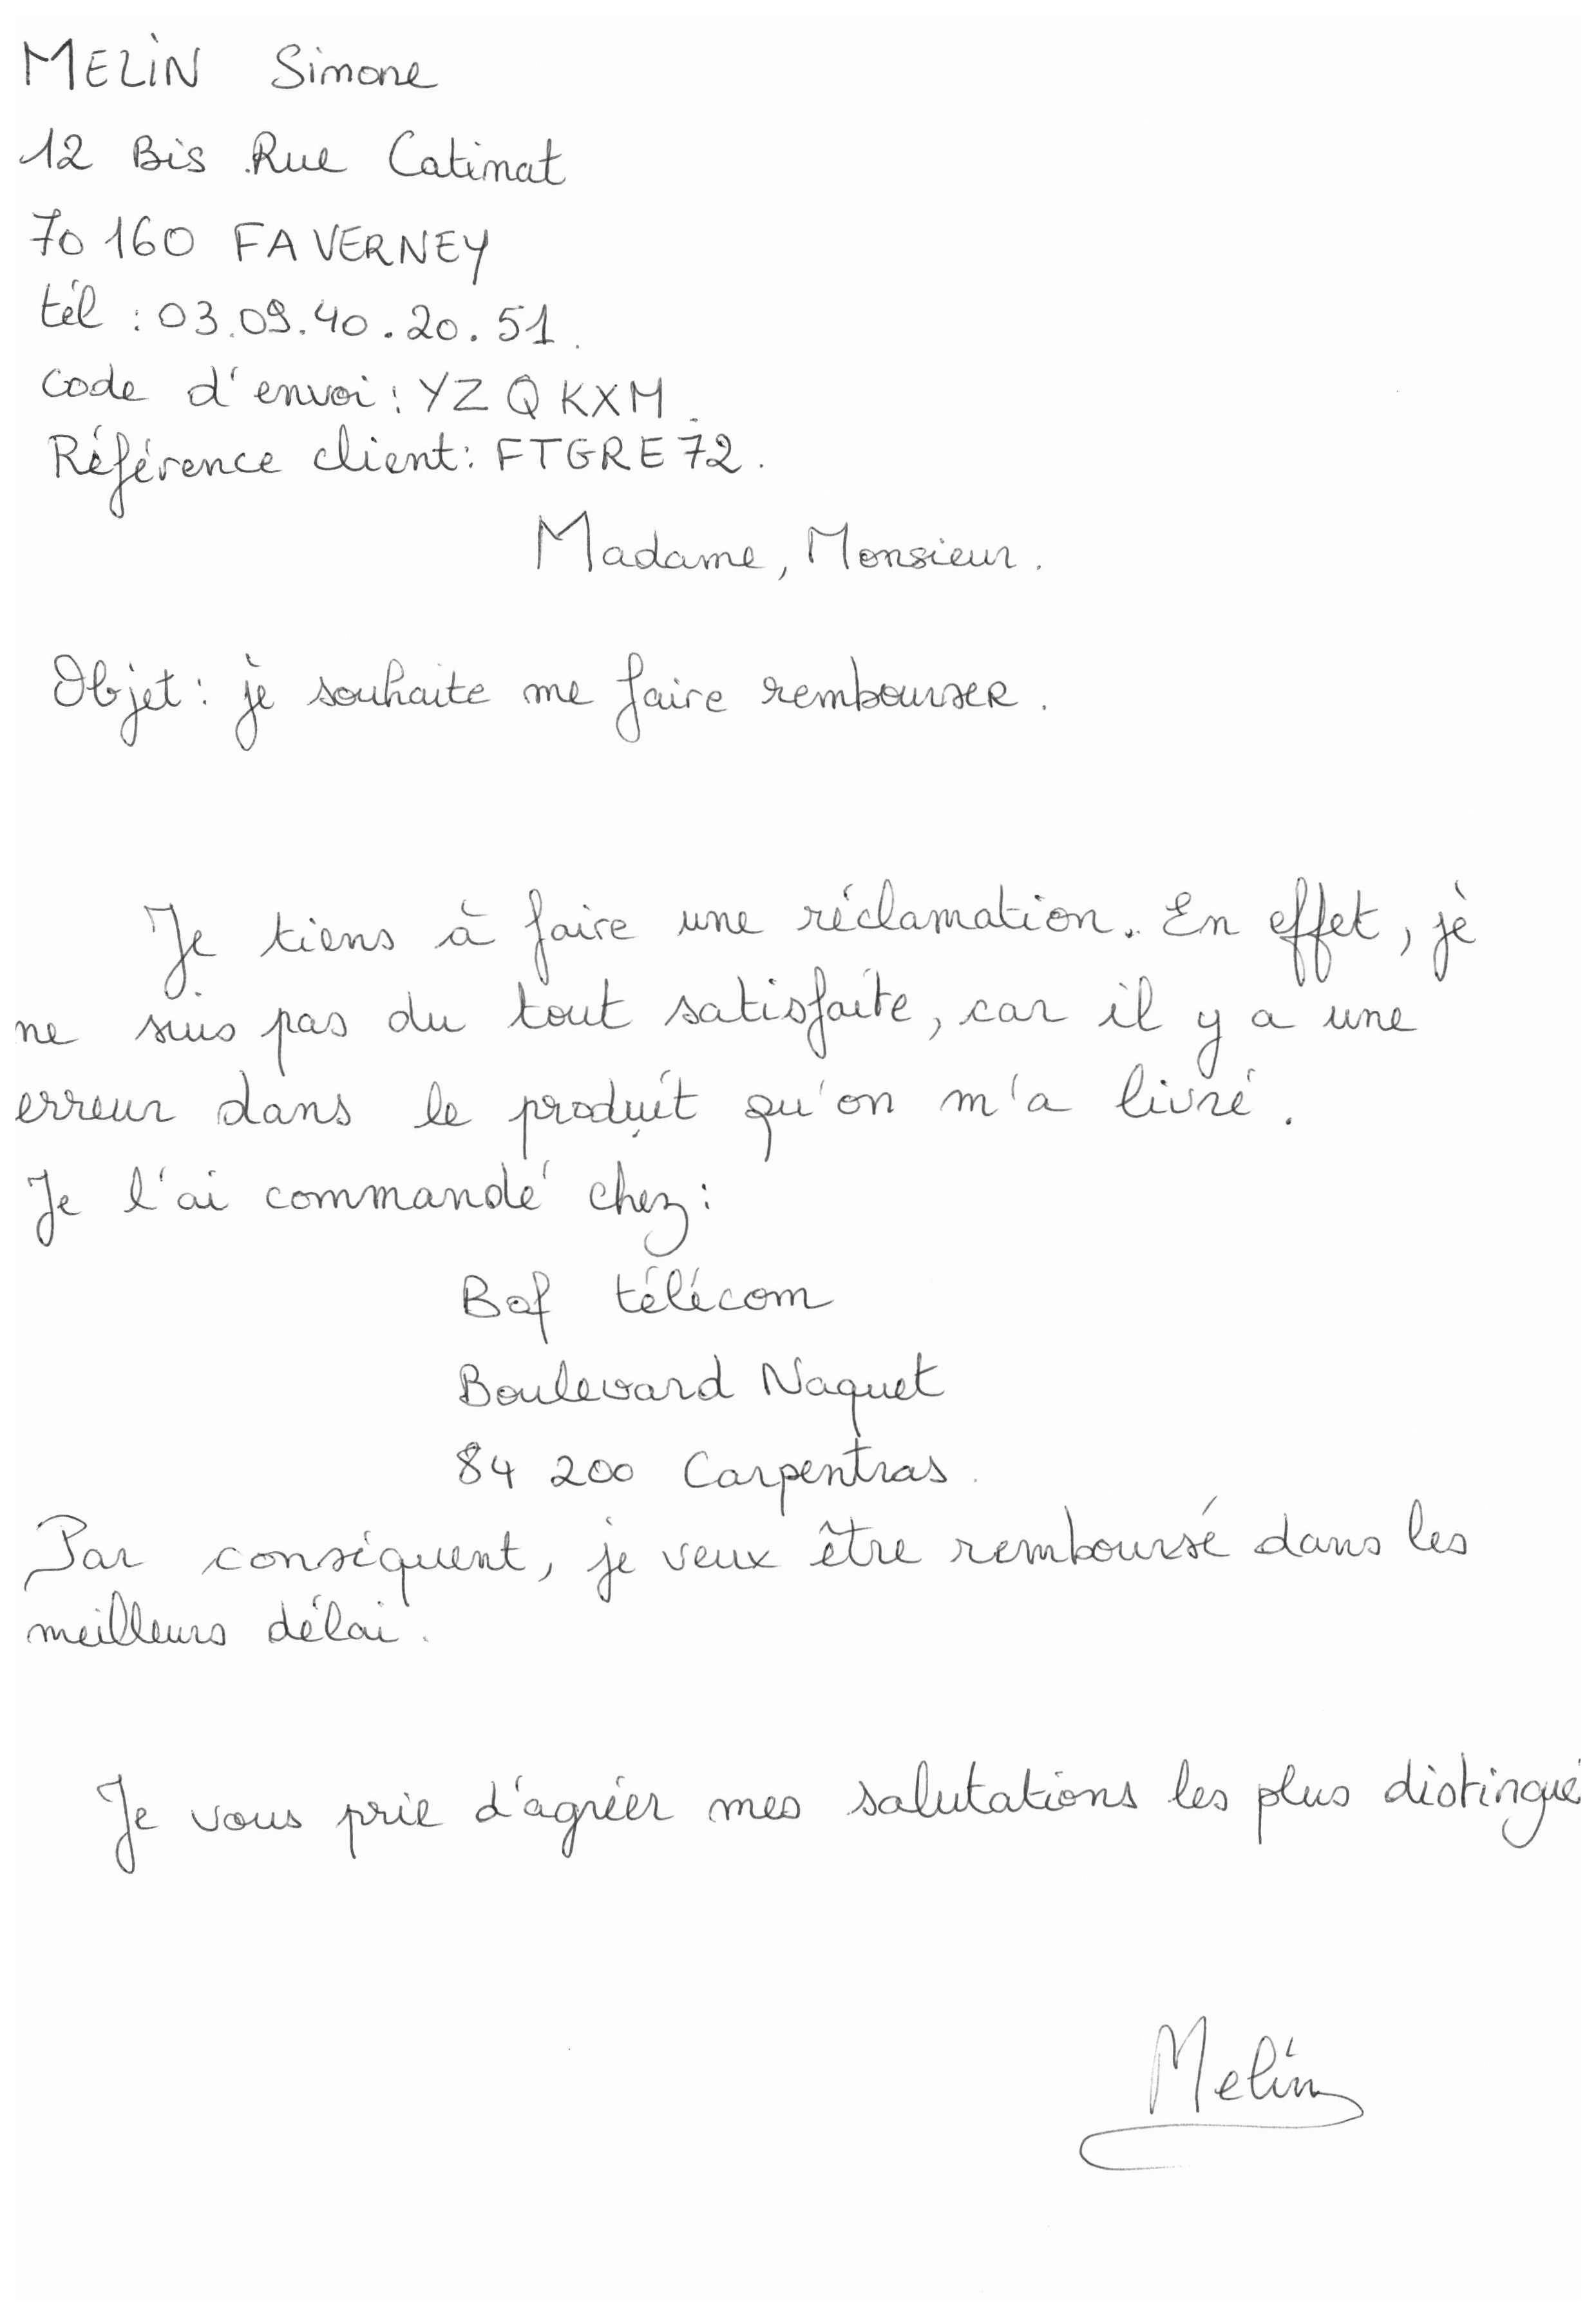 MELIN Simone
12 Bis Rue Catinat
70160 FAVERNEY
tél : 03.09.40.20.51.
Code d'envoi : YZQKXM.
Référence client : FTGRE72.
Madame, Monsieur.
Objet : je souhaite me faire rembourser.
Je tiens à faire une réclamation. En effet, je
ne suis pas du tout satisfaite, car il y a une
erreur dans le produit qu'on m'a livré.
Je l'ai commandé chez :
Baf télécom
Boulevard Naquet
84 200 Carpentras.
Par conséquent, je veux être remboursé dans les
meilleurs délai.
Je vous prie d'agréer mes salutations les plus distingué
Melin